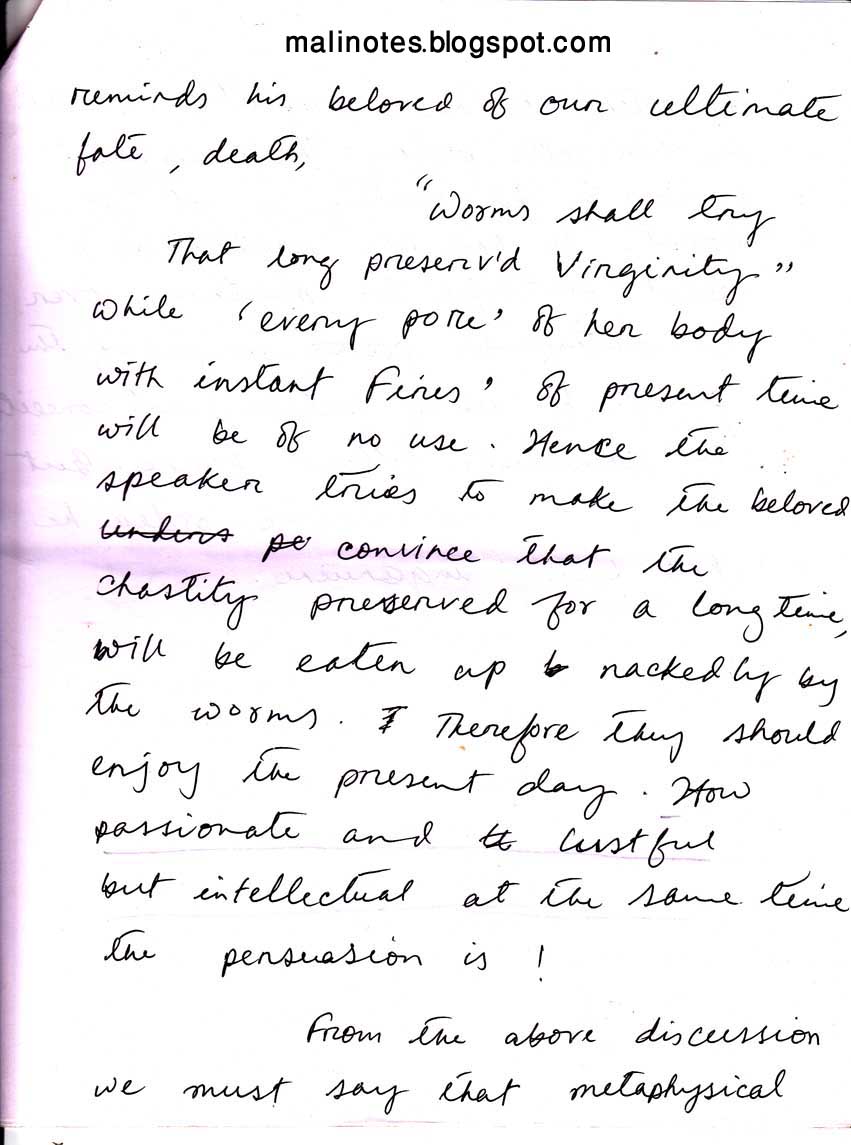 malinotes.blogspot.com
reminds his beloved of our ultimate
fate, death,
"Worms shall try
That long preserv'd Virginity"
while 'every pore' of her body
with instant Fires' of present time
will be of no use. Hence the
speaker tries to make the beloved
unders pe convince that the
chastity preserved for a long time,
will be eaten up b nackedly by
the worms. I Therefore they should
enjoy the present day. How
passionate and lt lustful
but intellectual at the same time
the persuasion is !
From the above discussion
we must say that metaphysical